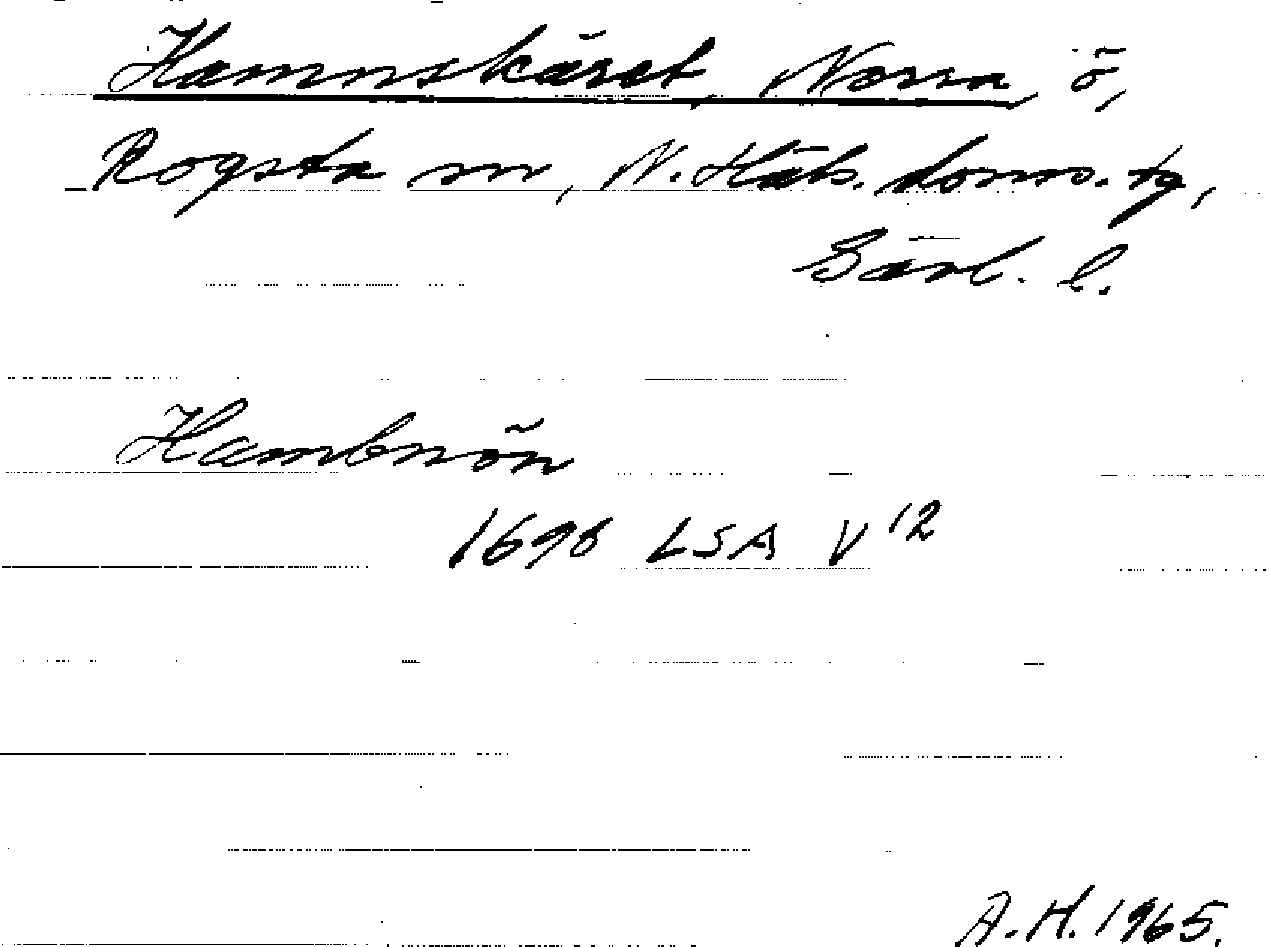 Hamnskäret, Norra, ö,
Rogsta sn, N. Häls. doms. tg,
Gävl. l.
Hambnön
1698 LSA V 12
A.H. 1965.